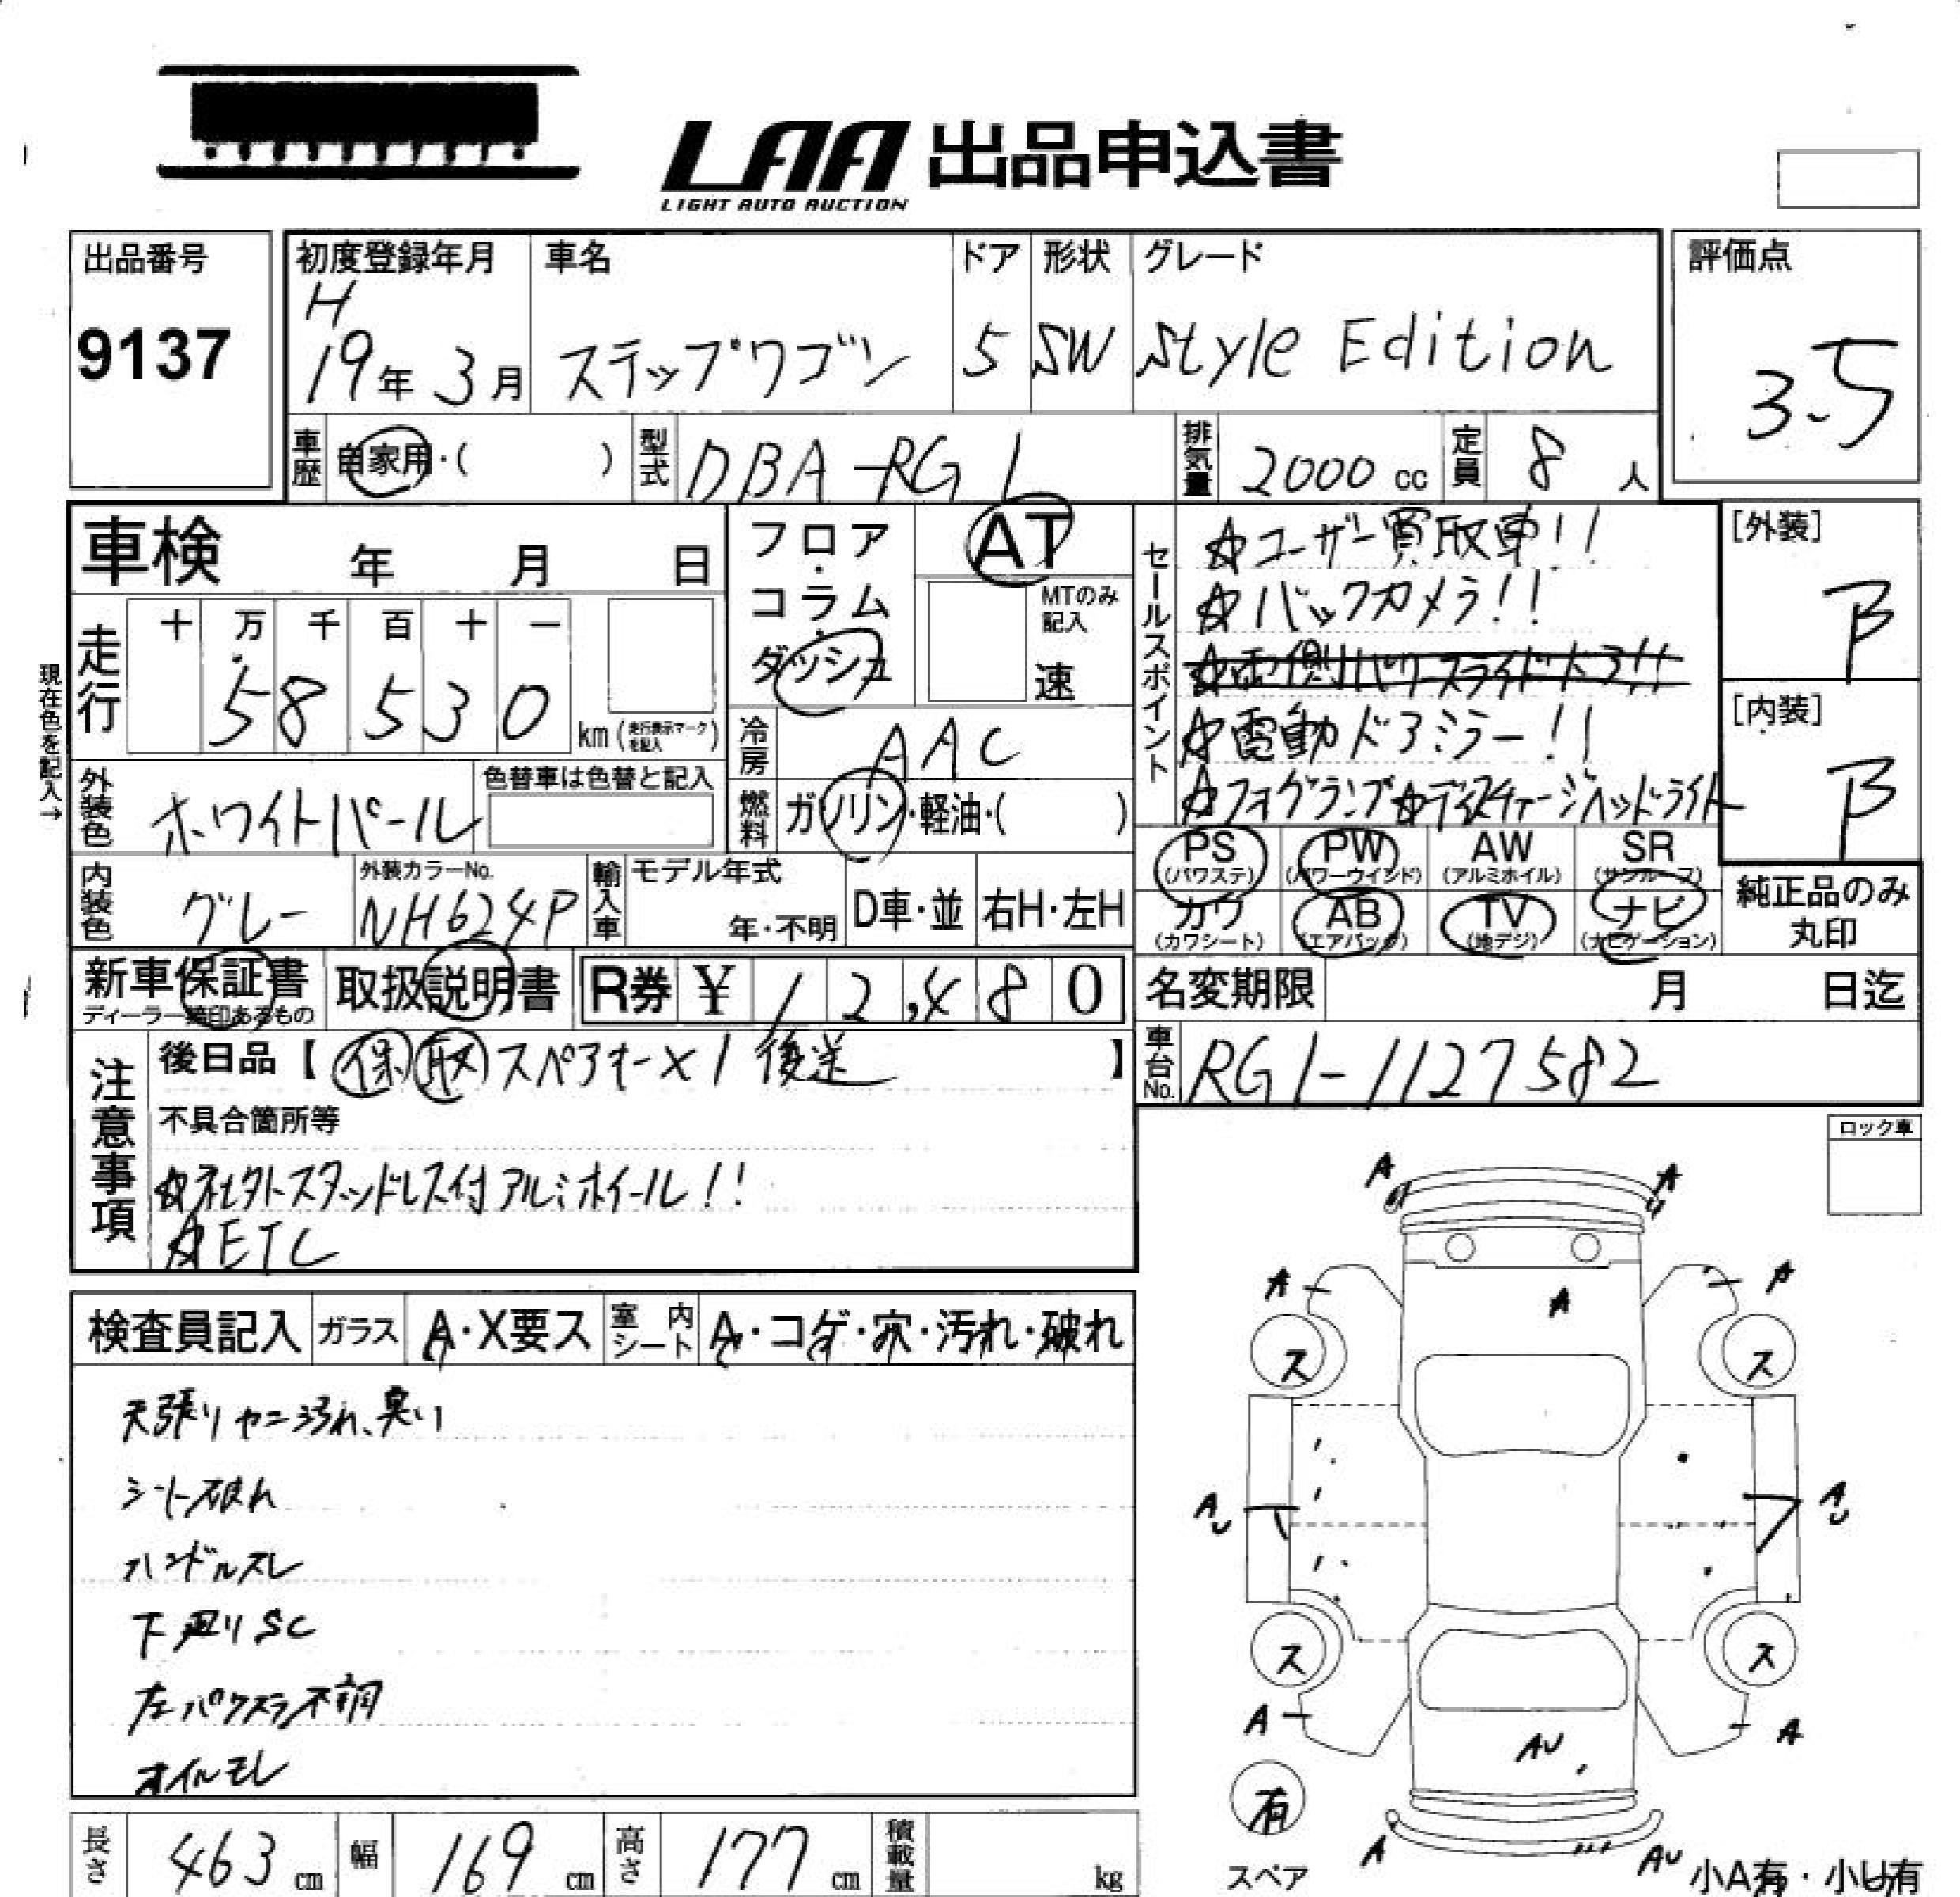 LAA 出品申込書
LIGHT AUTO AUCTION
出品番号
9137
初度登録年月
H
19年 3月
車名
ステップワゴン
ドア
5
形状
SW
グレード
Style Edition
評価点
3.5
車歴 自家用・( )
型式 DBA-RG1
排気量 2000 cc
定員 8 人
車検 年 月 日
フロア・コラム・ダッシュ
AT
MTのみ記入
速
走行
十 万 千 百 十 一
5 8 5 3 0
km(走行表示マークを記入)
冷房 AAC
燃料 ガソリン・軽油・( )
現在色を記入→
外装色 ホワイトパール
色替車は色替と記入
内装色 グレー
外装カラーNo.
NH624P
輸入車 モデル年式
年・不明
D車・並
右H・左H
セールスポイント
☆ユーザー買取車!!
☆バックカメラ!!
☆両側パワースライドドア!!
☆電動ドアミラー!!
☆フォグランプ☆ディスチャージヘッドライト
[外装]
B
[内装]
B
PS (パワステ)
PW (パワーウインド)
AW (アルミホイル)
SR (サンルーフ)
カワ (カワシート)
AB (エアバッグ)
TV (地デジ)
ナビ (ナビゲーション)
純正品のみ丸印
新車保証書
ディーラー捺印あるもの
取扱説明書
R券 ¥ 12,480
名変期限 月 日迄
車台No. RG1-1127582
注意事項
後日品【保 取 スペアキー×1 後送】
不具合箇所等
☆社外スタッドレス付アルミホイール!!
☆ETC
ロック車
検査員記入
ガラス A・X要ス
室内シート A・コゲ・穴・汚れ・破れ
天張りヤニ汚れ、臭い
シート破れ
ハンドルスレ
下廻りSC
左パワスラ不調
オイルモレ
A A
A A
A
ス ス
AU AU
ス ス
A A
AU
有
スペア
A AU
小A有・小U有
長さ 463 cm
幅 169 cm
高さ 177 cm
積載量 kg